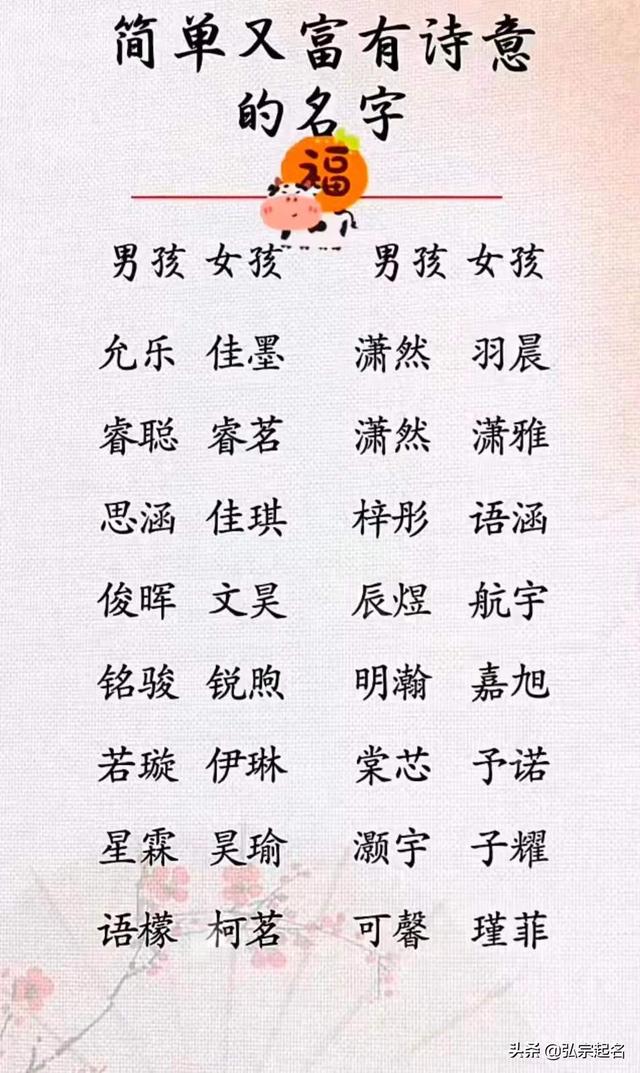 简单又富有诗意
的名字
福
男孩 女孩 男孩 女孩
允乐 佳墨 潇然 羽晨
睿聪 睿茗 潇然 潇雅
思涵 佳琪 梓彤 语涵
俊晖 文昊 辰煜 航宇
铭骏 锐煦 明瀚 嘉旭
若璇 伊琳 棠芯 予诺
星霖 昊瑜 灏宇 子耀
语檬 柯茗 可馨 瑾菲
头条 @弘宗起名